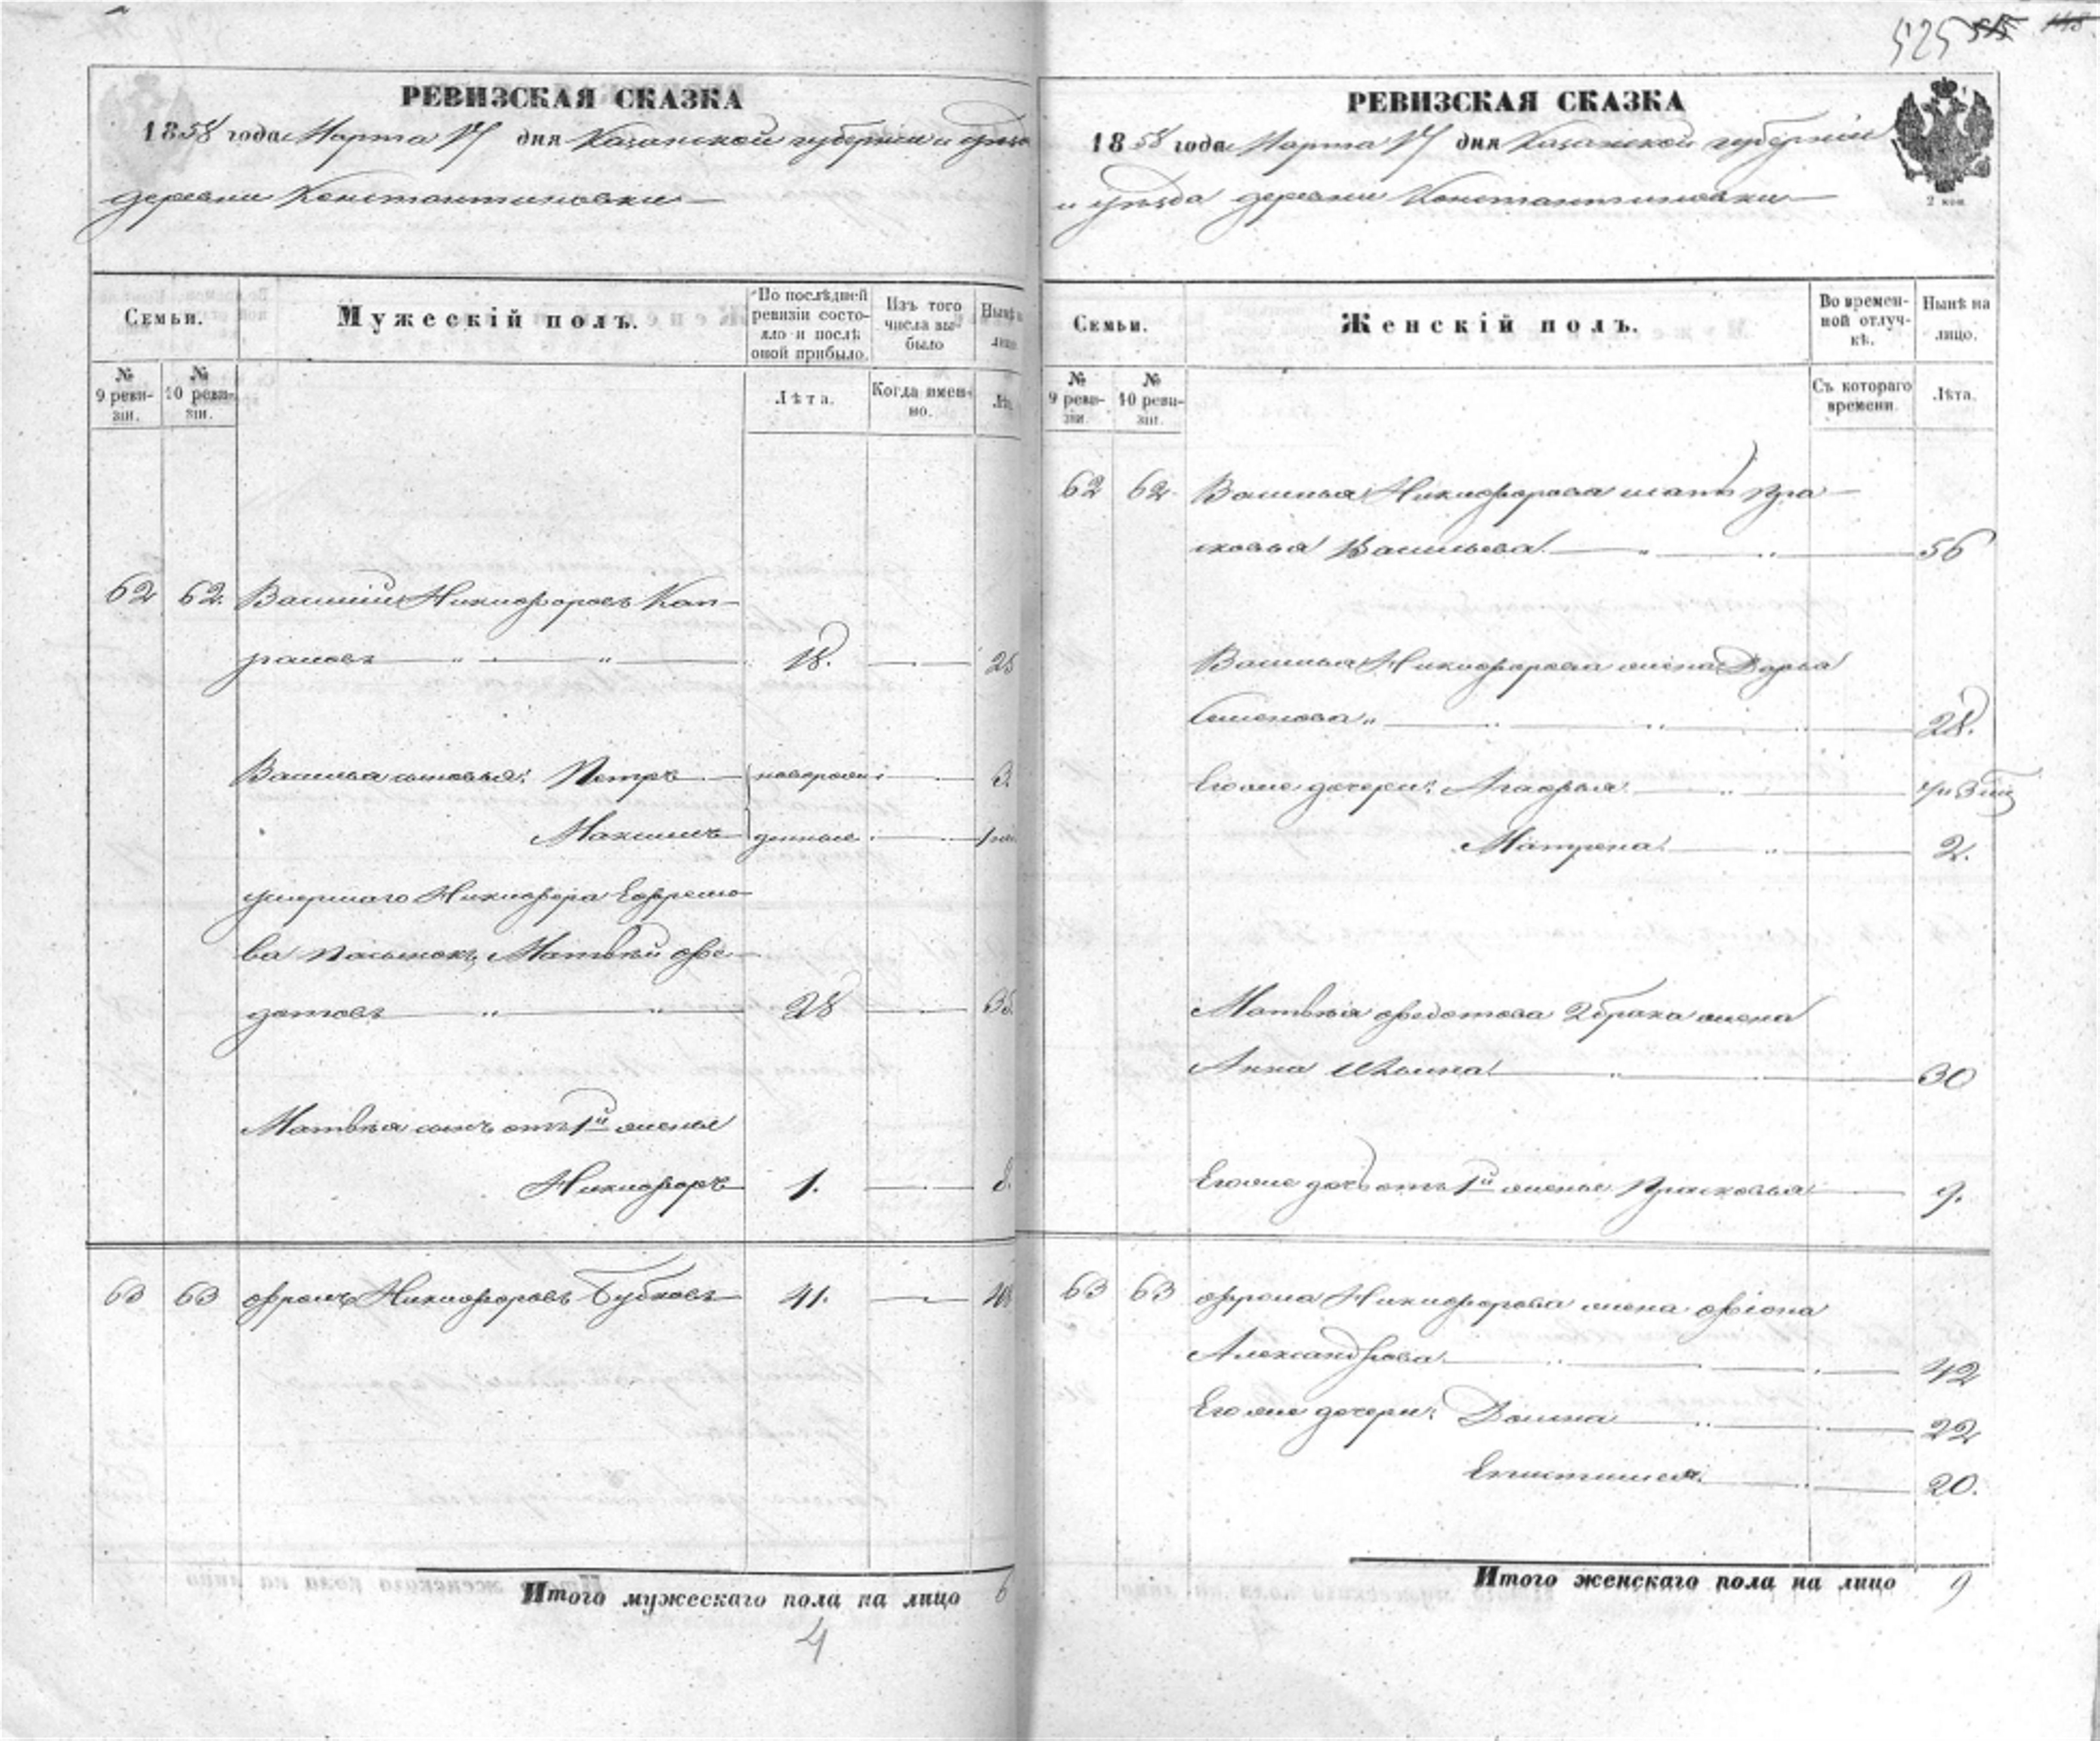 525
РЕВИЗСКАЯ СКАЗКА
1858 года Марта 17 дня Казанской губернии и уѣзда
деревни Константиновки
Семьи.
Мужескій полъ.
По послѣдней ревизіи состояло и послѣ оной прибыло.
Изъ того числа выбыло
Нынѣ на лицо.
№ 9 ревизіи.
№ 10 ревизіи.
Лѣта.
Когда именно.
Лѣта.
62 62. Василій Никифоровъ Кап-
раловъ 18. 25
Василья сыновья: Петръ новорож- 3.
Максимъ денные 1
умершаго Никифора Ефремо-
ва пасынокъ, Матвѣй Ѳе-
дотовъ 28 35.
Матвѣя сынъ отъ 1й жены
Никифоръ 1. 8.
63 63 Фролъ Никифоровъ Бубновъ 41. 48
Итого мужескаго пола на лицо 6
4
РЕВИЗСКАЯ СКАЗКА
1858 года Марта 17 дня Казанской губерніи
и уѣзда деревни Константиновки
2 коп
Семьи.
Женскій полъ.
Во временной отлучкѣ.
Нынѣ на лицо.
№ 9 ревизіи.
№ 10 ревизіи.
Съ котораго времени.
Лѣта.
62 62 Василья Никифорова мать Пра-
сковья Васильева 56
Василья Никифорова жена Дарья
Семенова 28.
Его же дочери: Агафья
Матрена 2.
Матвѣя Ѳедотова 2 брака жена
Анна Ильина 30
Его же дочь отъ 1й жены Прасковья 9.
63 63 Фрола Никифорова жена Ѳіона
Александрова 42
Его же дочери: Домна 22
Епистимія 20.
Итого женскаго пола на лицо 9